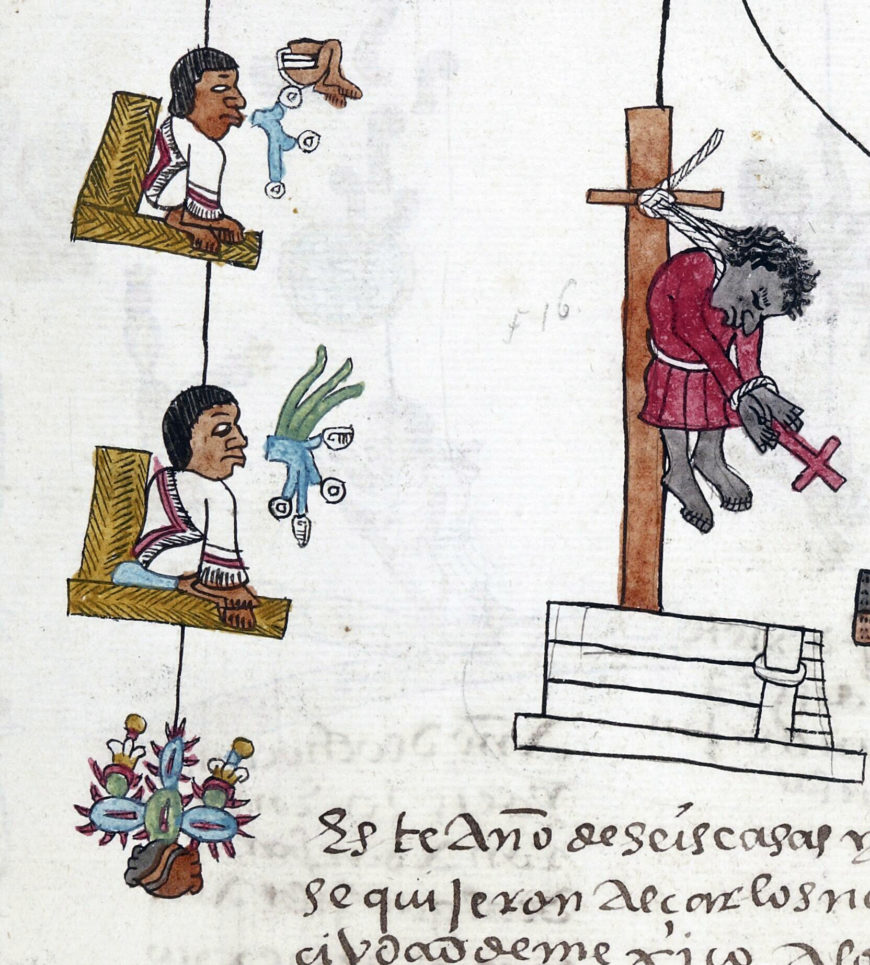 f 16.
Este Año de seis casas y
se quisieron Alçar los ne
ciudad de mexico Al